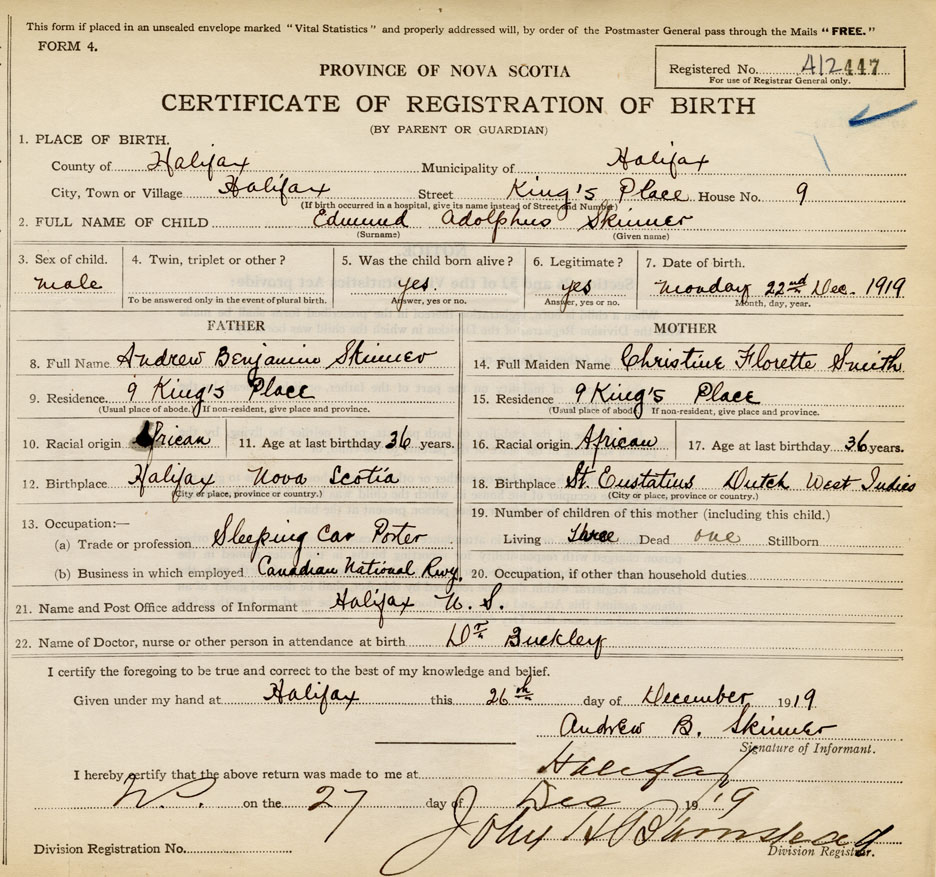 This form if placed in an unsealed envelope marked "Vital Statistics" and properly addressed will, by order of the Postmaster General pass through the Mails "FREE."
FORM 4.
Registered No. 412447
For use of Registrar General only.
PROVINCE OF NOVA SCOTIA
CERTIFICATE OF REGISTRATION OF BIRTH
(BY PARENT OR GUARDIAN)
1. PLACE OF BIRTH.
County of Halifax Municipality of Halifax
City, Town or Village Halifax Street King's Place House No. 9
(If birth occurred in a hospital, give its name instead of Street and Number)
2. FULL NAME OF CHILD Edmund Adolphus Skinner
(Surname) (Given name)
3. Sex of child. 4. Twin, triplet or other? 5. Was the child born alive? 6. Legitimate? 7. Date of birth.
male yes. yes Monday 22nd Dec. 1919
To be answered only in the event of plural birth. Answer, yes or no. Answer, yes or no. Month, day, year.
FATHER
8. Full Name Andrew Benjamin Skinner
9. Residence. 9 King's Place
(Usual place of abode. If non-resident, give place and province.)
10. Racial origin African 11. Age at last birthday 36 years.
12. Birthplace Halifax Nova Scotia
(City or place, province or country.)
13. Occupation:—
(a) Trade or profession. Sleeping Car Porter
(b) Business in which employed Canadian National Rwy.
MOTHER
14. Full Maiden Name Christine Florette Smith
15. Residence 9 King's Place
(Usual place of abode If non-resident, give place and province.)
16. Racial origin African 17. Age at last birthday 36 years.
18. Birthplace St. Eustatius Dutch West Indies
(City or place, province or country.)
19. Number of children of this mother (including this child.)
Living Three Dead one Stillborn
20. Occupation, if other than household duties
21. Name and Post Office address of Informant Halifax N. S.
22. Name of Doctor, nurse or other person in attendance at birth Dr Buckley
I certify the foregoing to be true and correct to the best of my knowledge and belief.
Given under my hand at Halifax this 26th day of December 1919
Andrew B. Skinner
Signature of Informant.
I hereby certify that the above return was made to me at Halifax
on the 27 day of Dec 1919
John H
Division Registration No. Division Registrar.